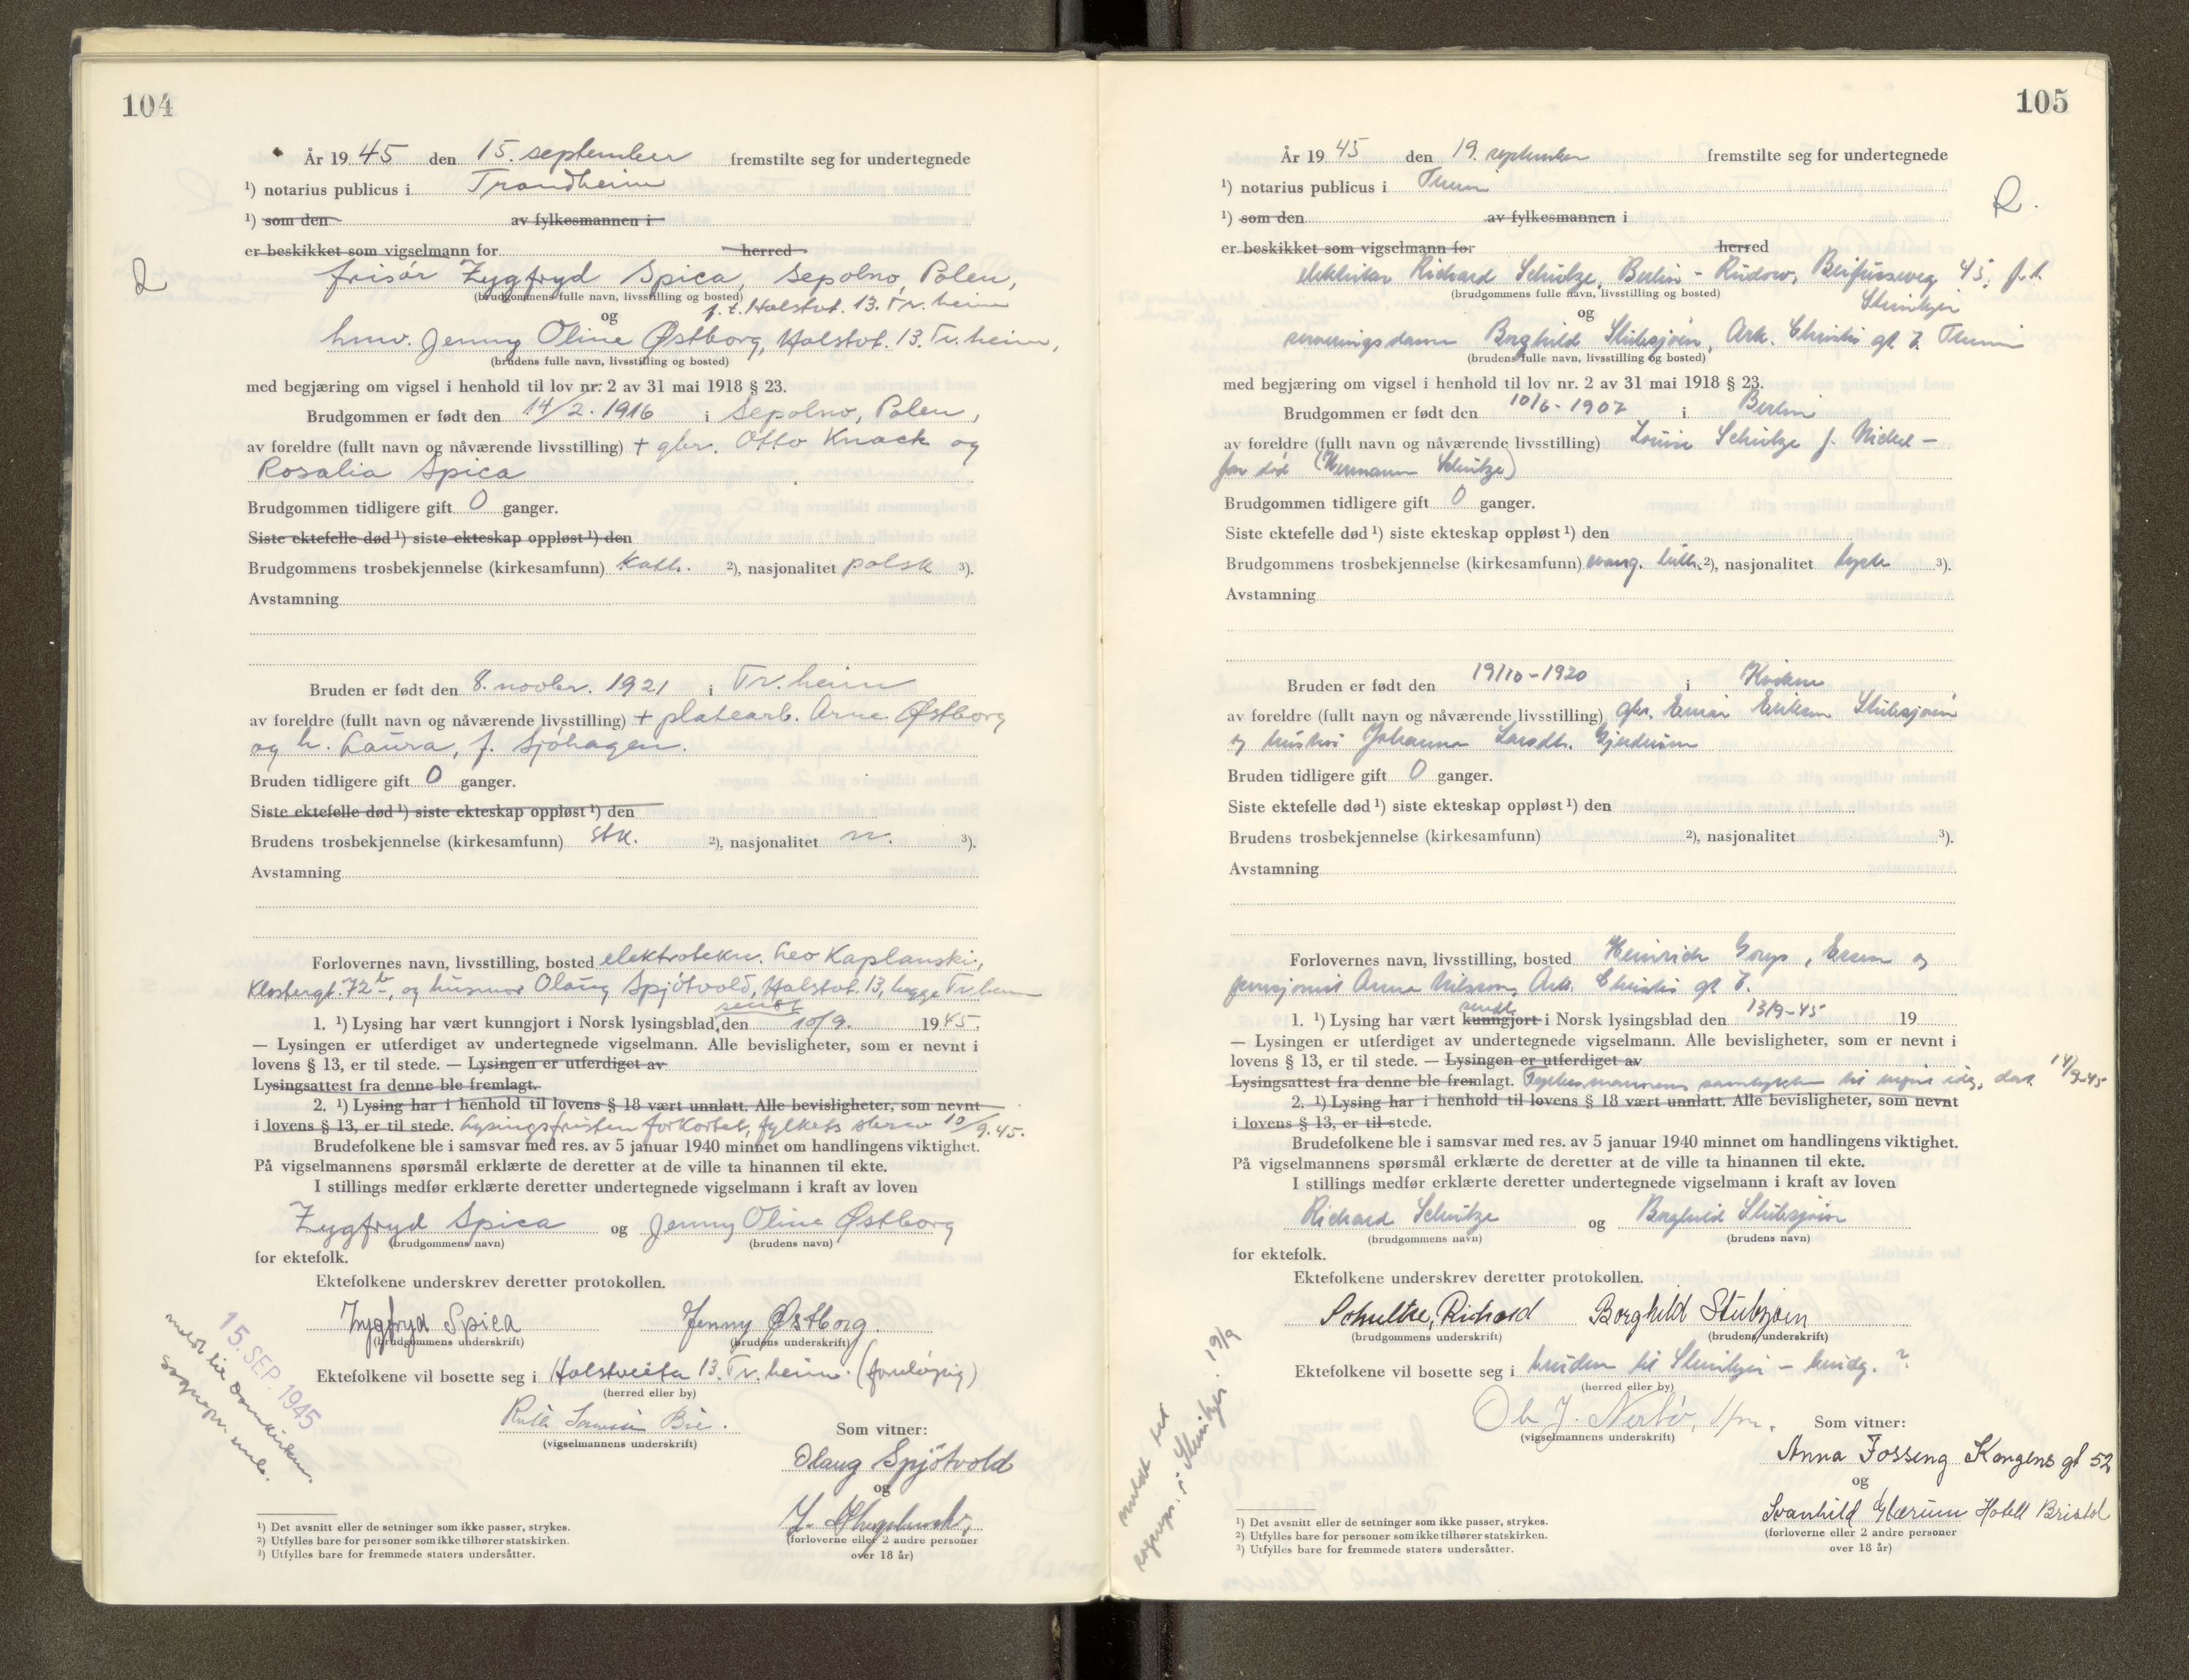 104
År 19 45 den 15. september fremstilte seg for undertegnede
¹) notarius publicus i Trondheim
¹) som den av fylkesmannen i
er beskikket som vigselmann for herred
frisør Zygfryd Spica, Sepolno, Polen,
(brudgommens fulle navn, livsstilling og bosted)
f. t. Holstvt. 13. Tr. heim
og
hmv. Jenny Oline Østborg, Holstvt. 13. Tr. heim,
(brudens fulle navn, livsstilling og bosted)
med begjæring om vigsel i henhold til lov nr. 2 av 31 mai 1918 § 23.
Brudgommen er født den 14/2. 1916 i Sepolno, Polen,
av foreldre (fullt navn og nåværende livsstilling) + gbr. Otto Knack og
Rosalia Spica
Brudgommen tidligere gift 0 ganger.
Siste ektefelle død ¹) siste ekteskap oppløst ¹) den
Brudgommens trosbekjennelse (kirkesamfunn) kath. ²), nasjonalitet polsk ³).
Avstamning
Bruden er født den 8. novbr. 1921 i Tr. heim
av foreldre (fullt navn og nåværende livsstilling) + platearb. Arne Østborg
og h. Laura, f. Sjøhagen.
Bruden tidligere gift 0 ganger.
Siste ektefelle død ¹) siste ekteskap oppløst ¹) den
Brudens trosbekjennelse (kirkesamfunn) stk. ²), nasjonalitet n. ³).
Avstamning
Forlovernes navn, livsstilling, bosted elektrotekn. Leo Kaplanski,
Klostergt. 72 b, og husmor Olaug Spjøtvold, Holstvt. 13, begge Tr. heim
sendt
1. ¹) Lysing har vært kunngjort i Norsk lysingsblad den 10/9. 19 45.
— Lysingen er utferdiget av undertegnede vigselmann. Alle bevisligheter, som er nevnt i
lovens § 13, er til stede. — Lysingen er utferdiget av
Lysingsattest fra denne ble fremlagt.
2. ¹) Lysing har i henhold til lovens § 18 vært unnlatt. Alle bevisligheter, som nevnt
i lovens § 13, er til stede. Lysingsfristen forkortet, fylkets skriv 10/9.45.
Brudefolkene ble i samsvar med res. av 5 januar 1940 minnet om handlingens viktighet.
På vigselmannens spørsmål erklærte de deretter at de ville ta hinannen til ekte.
I stillings medfør erklærte deretter undertegnede vigselmann i kraft av loven
Zygfryd Spica og Jenny Oline Østborg
(brudgommens navn) (brudens navn)
for ektefolk.
Ektefolkene underskrev deretter protokollen.
Zygfryd Spica Jenny Østborg.
(brudgommens underskrift) (brudens underskrift)
Ektefolkene vil bosette seg i Holstveita 13. Tr. heim. (foreløpig)
(herred eller by)
15. SEP. 1945
meldt til Domkirken
(vigselmannens underskrift)
Som vitner:
Olaug Spjøtvold
og
(forloverne eller 2 andre personer
over 18 år)
¹) Det avsnitt eller de setninger som ikke passer, strykes.
²) Utfylles bare for personer som ikke tilhører statskirken.
³) Utfylles bare for fremmede staters undersåtter.
105
År 19 45 den 19. september fremstilte seg for undertegnede
¹) notarius publicus i Thrm
R.
¹) som den av fylkesmannen i
er beskikket som vigselmann for herred
elektriker Richard Schultze, Berlin - Rudow, Beifussweg 45, f. t.
(brudgommens fulle navn, livsstilling og bosted)
Steinkjer
og
serveringsdame Borghild Stubsjøen, Ark. Christies gt 7. Thrm
(brudens fulle navn, livsstilling og bosted)
med begjæring om vigsel i henhold til lov nr. 2 av 31 mai 1918 § 23.
Brudgommen er født den 10/6 - 1907 i Berlin
av foreldre (fullt navn og nåværende livsstilling) Louise Schultze f. Nickel -
far død (Hermann Schultze)
Brudgommen tidligere gift 0 ganger.
Siste ektefelle død ¹) siste ekteskap oppløst ¹) den
Brudgommens trosbekjennelse (kirkesamfunn) evang. luth. ²), nasjonalitet tysk ³).
Avstamning
Bruden er født den 19/10 - 1920 i Kvikne
av foreldre (fullt navn og nåværende livsstilling) gbr. Einar Eriksen Stubsjøen
og hustru Johanna Larsdtr. Gjerdrum
Bruden tidligere gift 0 ganger.
Siste ektefelle død ¹) siste ekteskap oppløst ¹) den
Brudens trosbekjennelse (kirkesamfunn) ²), nasjonalitet ³).
Avstamning
Forlovernes navn, livsstilling, bosted Heinrich Gorys, Essen og
Anna Nilsson, Ark. Christies gt 7.
sendt
1. ¹) Lysing har vært kunngjort i Norsk lysingsblad den 13/9-45 19
— Lysingen er utferdiget av undertegnede vigselmann. Alle bevisligheter, som er nevnt i
lovens § 13, er til stede. — Lysingen er utferdiget av
Lysingsattest fra denne ble fremlagt. Fylkesmannens samtykke til vigsel idag, dat. 14/9-45
2. ¹) Lysing har i henhold til lovens § 18 vært unnlatt. Alle bevisligheter, som nevnt
i lovens § 13, er til stede.
Brudefolkene ble i samsvar med res. av 5 januar 1940 minnet om handlingens viktighet.
På vigselmannens spørsmål erklærte de deretter at de ville ta hinannen til ekte.
I stillings medfør erklærte deretter undertegnede vigselmann i kraft av loven
Richard Schultze og Borghild Stubsjøen
(brudgommens navn) (brudens navn)
for ektefolk.
Ektefolkene underskrev deretter protokollen.
Schultze, Richard Borghild Stubsjøen
(brudgommens underskrift) (brudens underskrift)
Ektefolkene vil bosette seg i bruden til Steinkjer - brudg. ?
(herred eller by)
meldt til sognepr. i Steinkjer 19/9
(vigselmannens underskrift)
Som vitner:
Anna Fosseng Kongens gt 52
og
Svanhild Glærum Hotell Bristol
(forloverne eller 2 andre personer
over 18 år)
¹) Det avsnitt eller de setninger som ikke passer, strykes.
²) Utfylles bare for personer som ikke tilhører statskirken.
³) Utfylles bare for fremmede staters undersåtter.